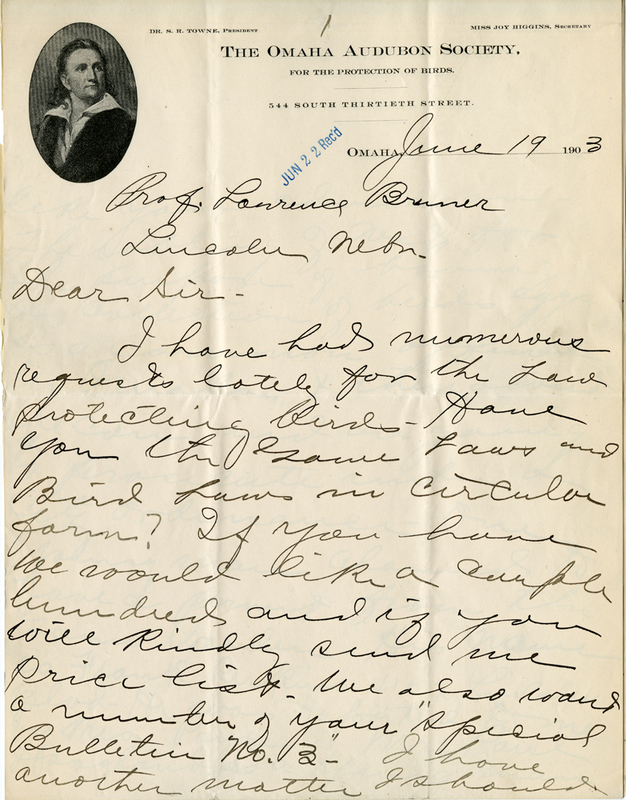 1
DR. S. R. TOWNE, PRESIDENT
MISS JOY HIGGINS, SECRETARY
THE OMAHA AUDUBON SOCIETY,
FOR THE PROTECTION OF BIRDS.
544 SOUTH THIRTIETH STREET.
JUN 22 Rec'd
OMAHA, June 19 1903
Prof. Lawrence Bruner
Lincoln Nebr.
Dear Sir -
I have had numerous
requests lately for the Law
protecting birds - Have
you the Game Laws and
Bird Laws in circular
form? If you have
we would like a couple
hundred and if you
will kindly send me
price list. We also want
a number of your "Special
Bulletin No. 3" - I have
another matter I should